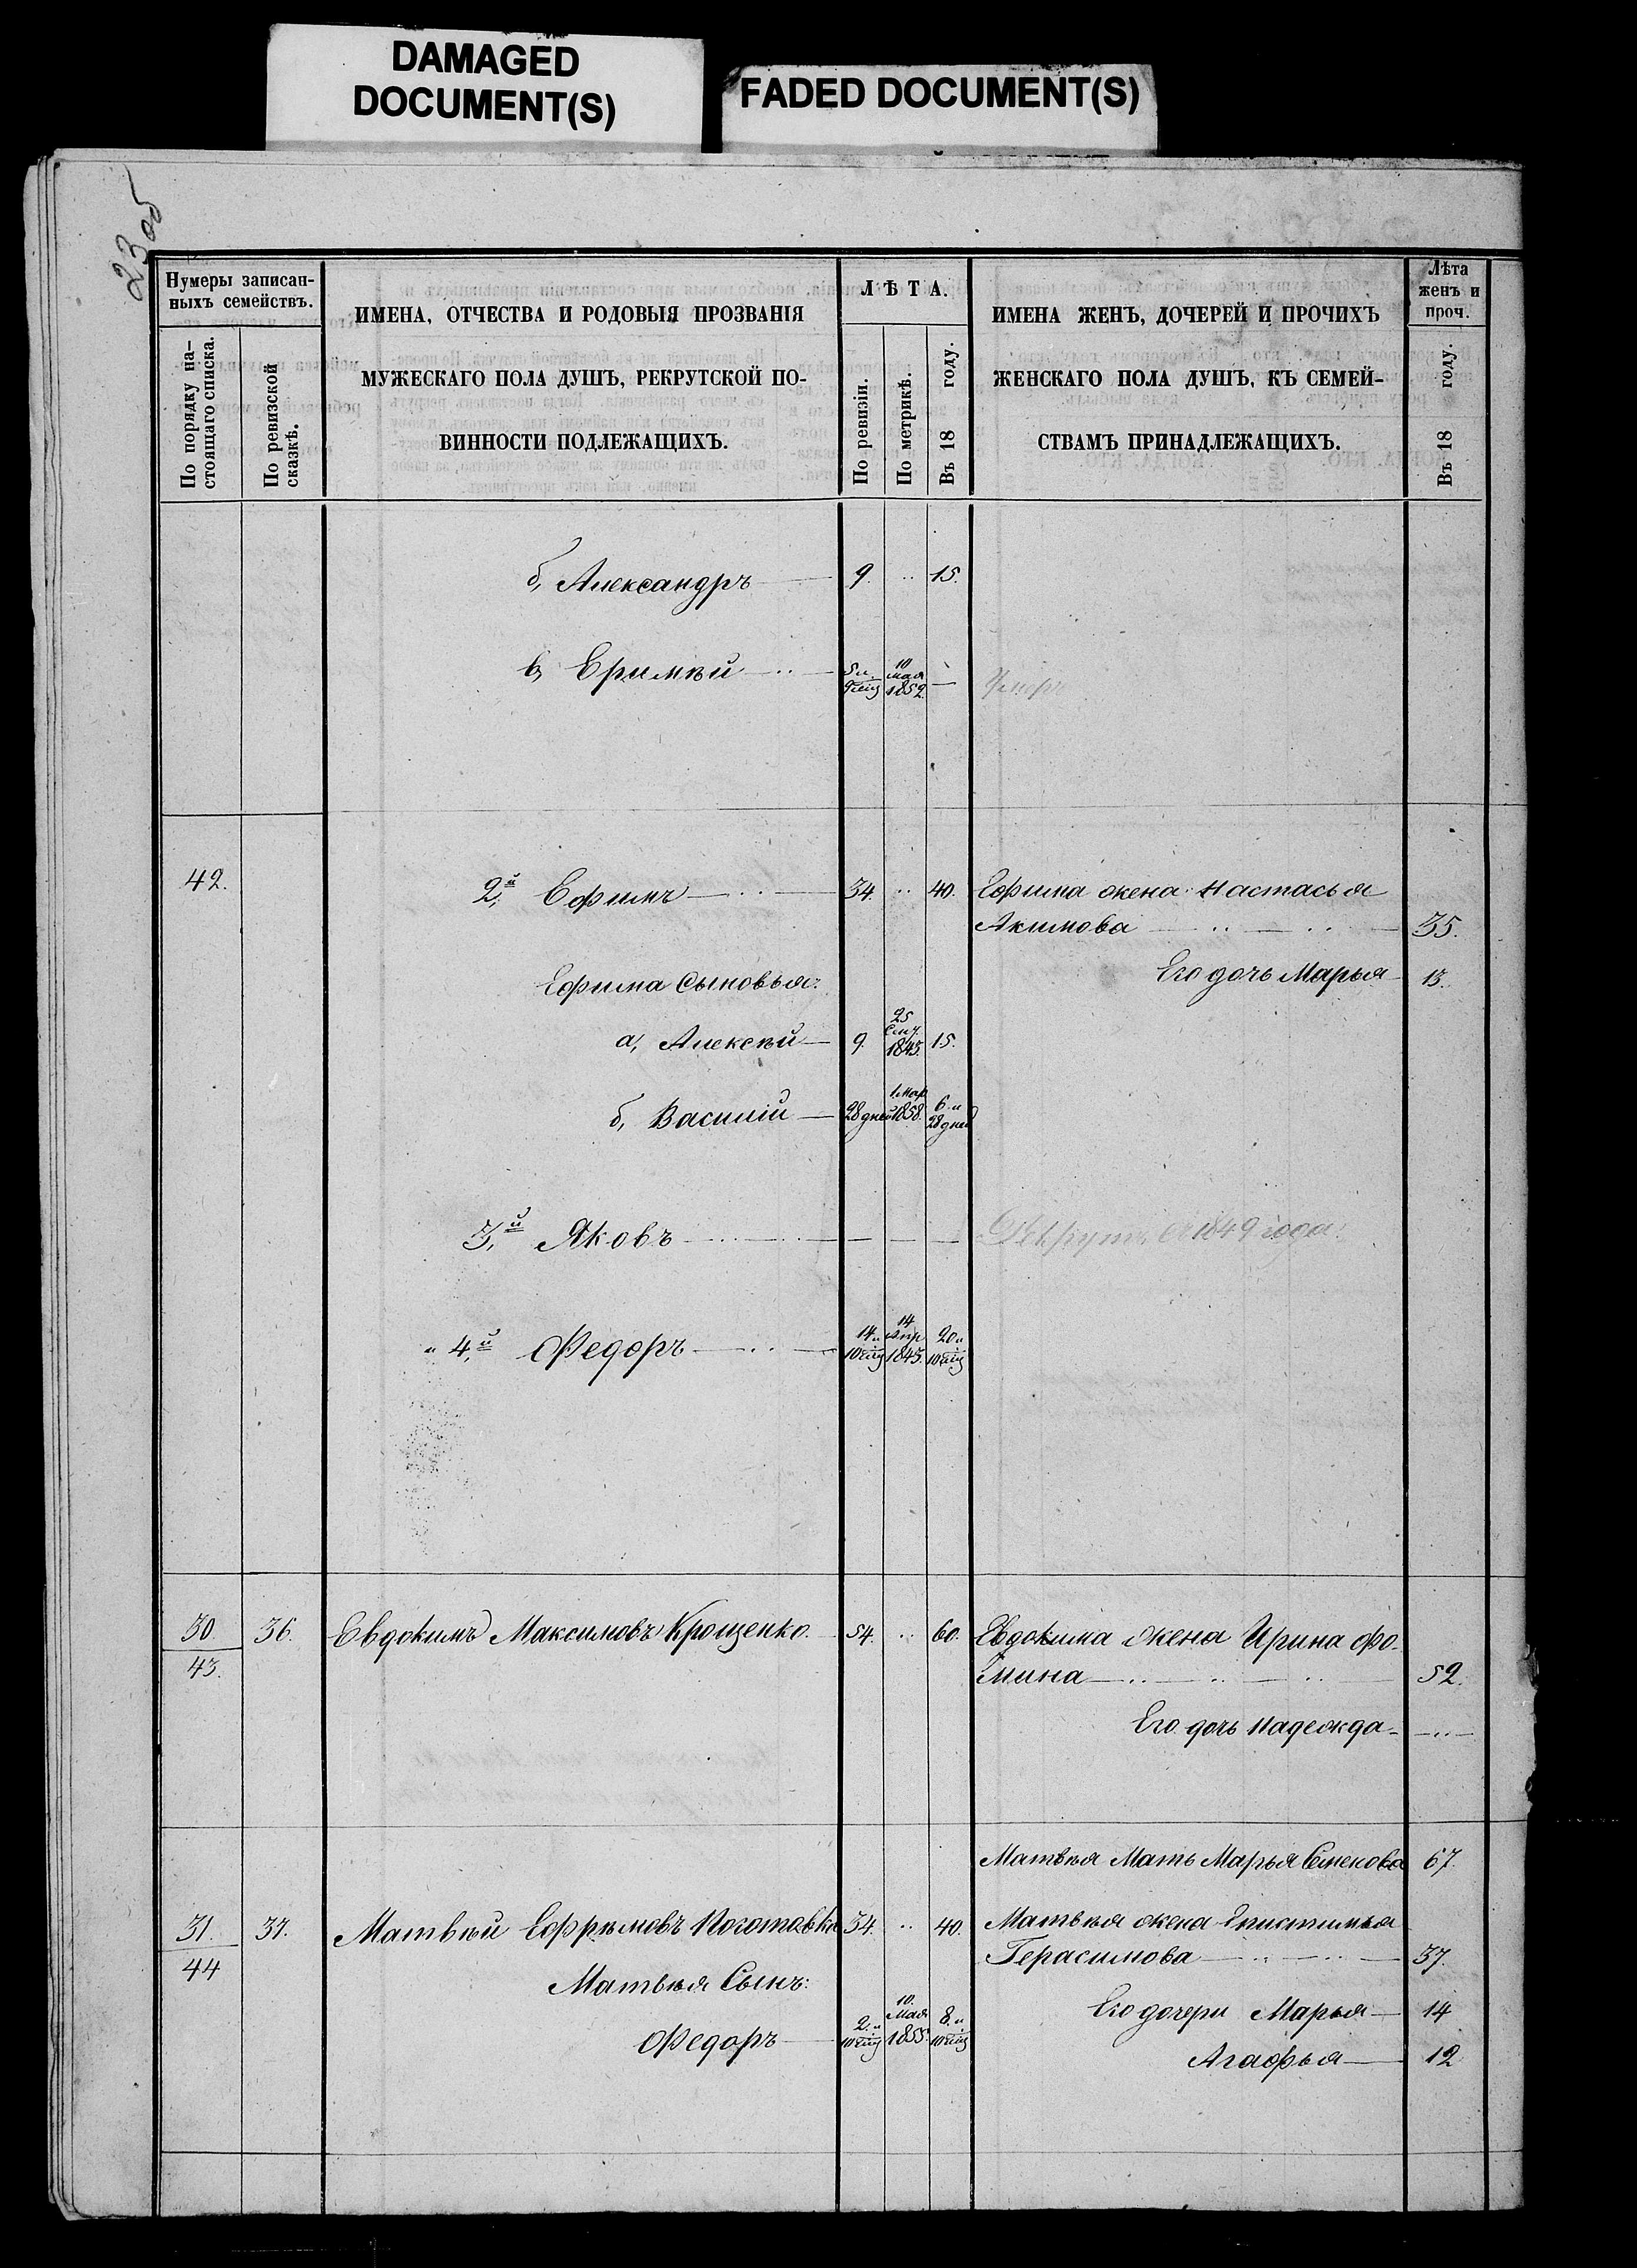 DAMAGED
DOCUMENT(S)
FADED DOCUMENT(S)
23 об
Нумеры записан-
ныхъ семействъ.
По порядку на-
стоящаго списка.
По ревизской
сказкѣ.
ИМЕНА, ОТЧЕСТВА И РОДОВЫЯ ПРОЗВАНІЯ
МУЖЕСКАГО ПОЛА ДУШЪ, РЕКРУТСКОЙ ПО-
ВИННОСТИ ПОДЛЕЖАЩИХЪ.
ЛѢТА.
По ревизіи.
По метрикѣ.
Въ 18 году.
ИМЕНА ЖЕНЪ, ДОЧЕРЕЙ И ПРОЧИХЪ
ЖЕНСКАГО ПОЛА ДУШЪ, КЪ СЕМЕЙ-
СТВАМЪ ПРИНАДЛЕЖАЩИХЪ.
Лѣта
женъ и
проч.
Въ 18 году.
б, Александръ 9. 15.
в, 10 Мая 1852.
42. 2й Ефимъ 34. 40. Ефима жена Настасья
Акимова 35.
Ефима Сыновья: Его дочь Марья 13.
а, Алексѣй 9. 25 1845. 15.
б, Василій 28 дней 1 Мар 1858. 6 и 28 дней
3й Яковъ Рекрутъ 1849 года
4й Федоръ 14 и 10 мѣц 14 Апр 1843. 20 и 10 мѣц
30 36. Евдокимъ Максимовъ Крощенко. 54. 60. Евдокима жена Ирина Фо-
43. мина 52.
Его дочь Надежда
Матвѣя Мать Марья Семенова 67.
31. 37. Матвѣй Ефремовъ 34. 40. Матвѣя жена Епистимья
44 Герасимова 37.
Матвѣя Сынъ:
Федоръ 2 и 10 мѣц 10. Мая 1855. 8 и 10 мѣц Его дочери Марья 14
Агафья 12